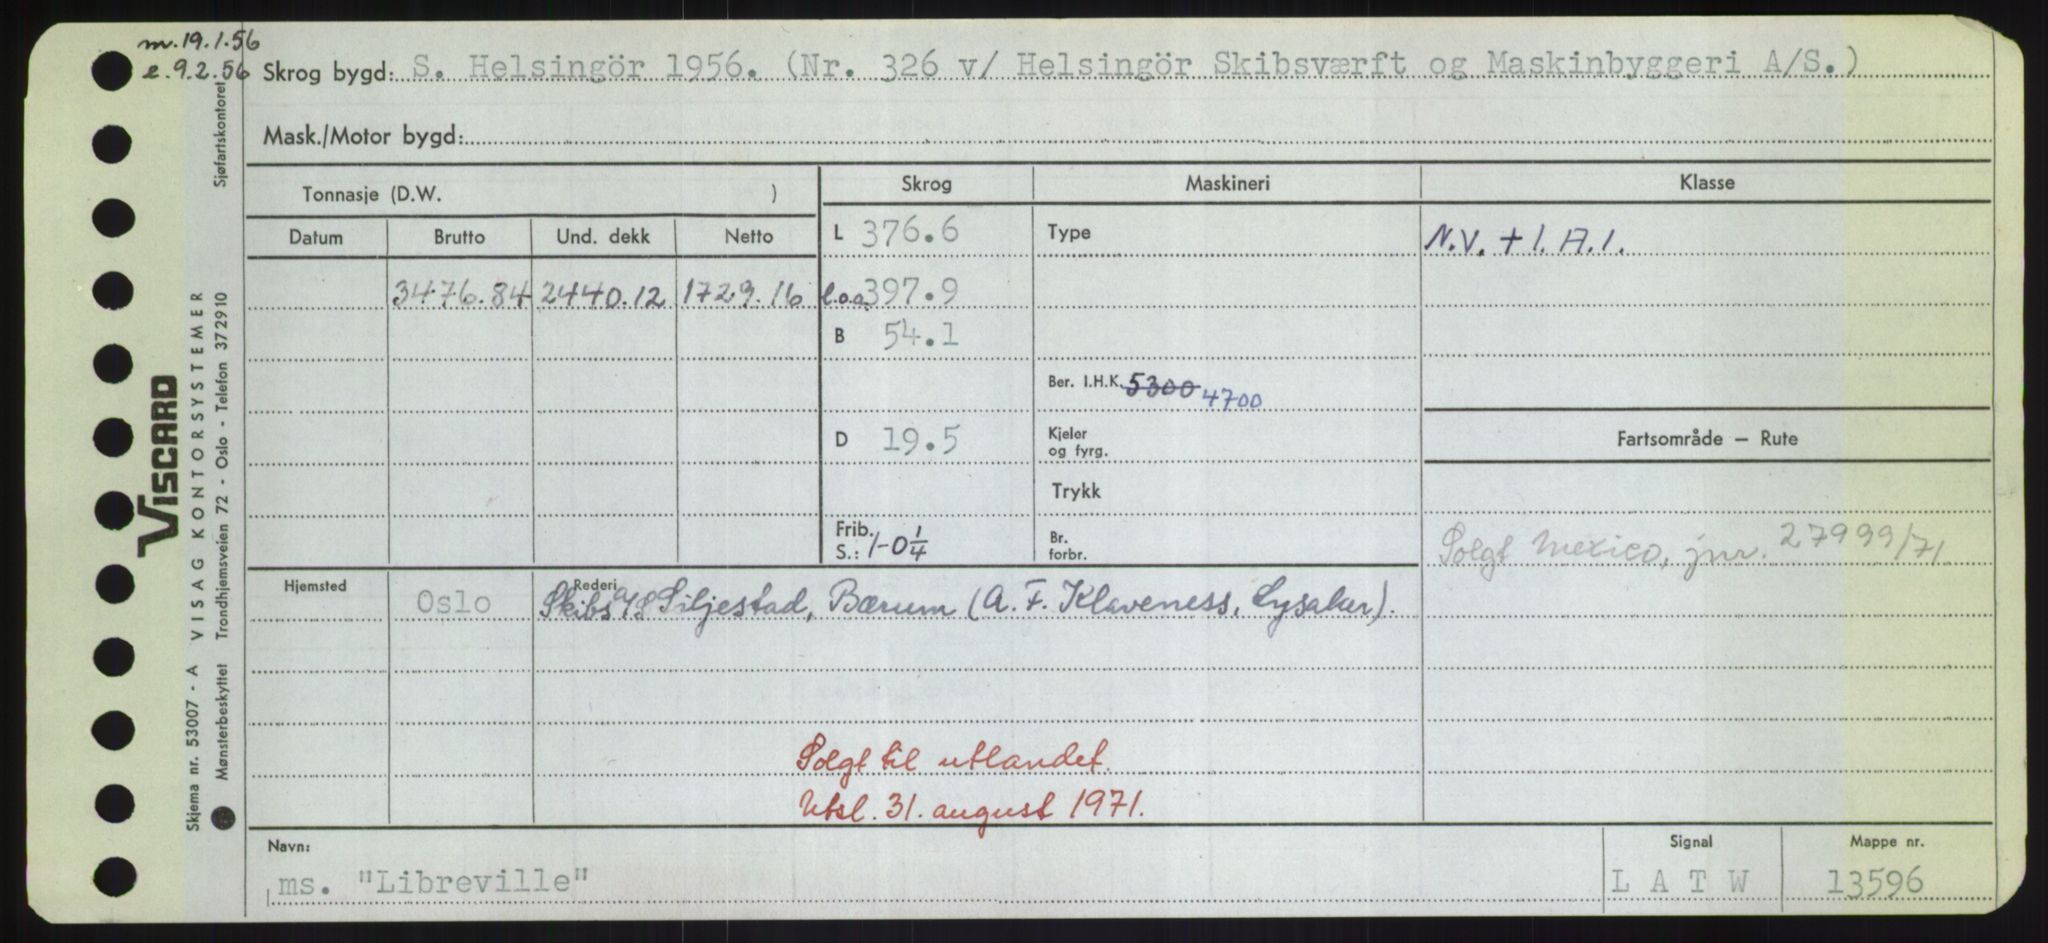 m. 19.1.56
e. 9.2.56
Skrog bygd: S. Helsingör 1956. (Nr. 326 v/ Helsingör Skibsværft og Maskinbyggeri A/S.)
Mask./Motor bygd:
Tonnasje (D.W. )
Skrog Maskineri Klasse
Datum Brutto Und. dekk Netto
L 376.6 Type N.V. + 1. A. 1.
3476.84 2440.12 1729.16 l.o.a. 397.9
B 54.1
Ber. I.H.K. 5300 4700
D 19.5 Kjeler og fyrg. Fartsområde — Rute
Trykk
Frib. S.: 1-0 1/4 Br. forbr. Solgt Mexico, jnr. 27999/71
Hjemsted Oslo Rederi Skibs A/S Siljestad, Bærum (A. F. Klaveness, Lysaker).
Solgt til utlandet.
Utsl. 31. august 1971.
Navn: Signal Mappe nr.
ms. "Libreville" L A T W 13596
VISCARD
Skjema nr. 53007 - A VISAG KONTORSYSTEMER
Mønsterbeskyttet Trondhjemsveien 72 - Oslo - Telefon 372910 Sjøfartskontoret